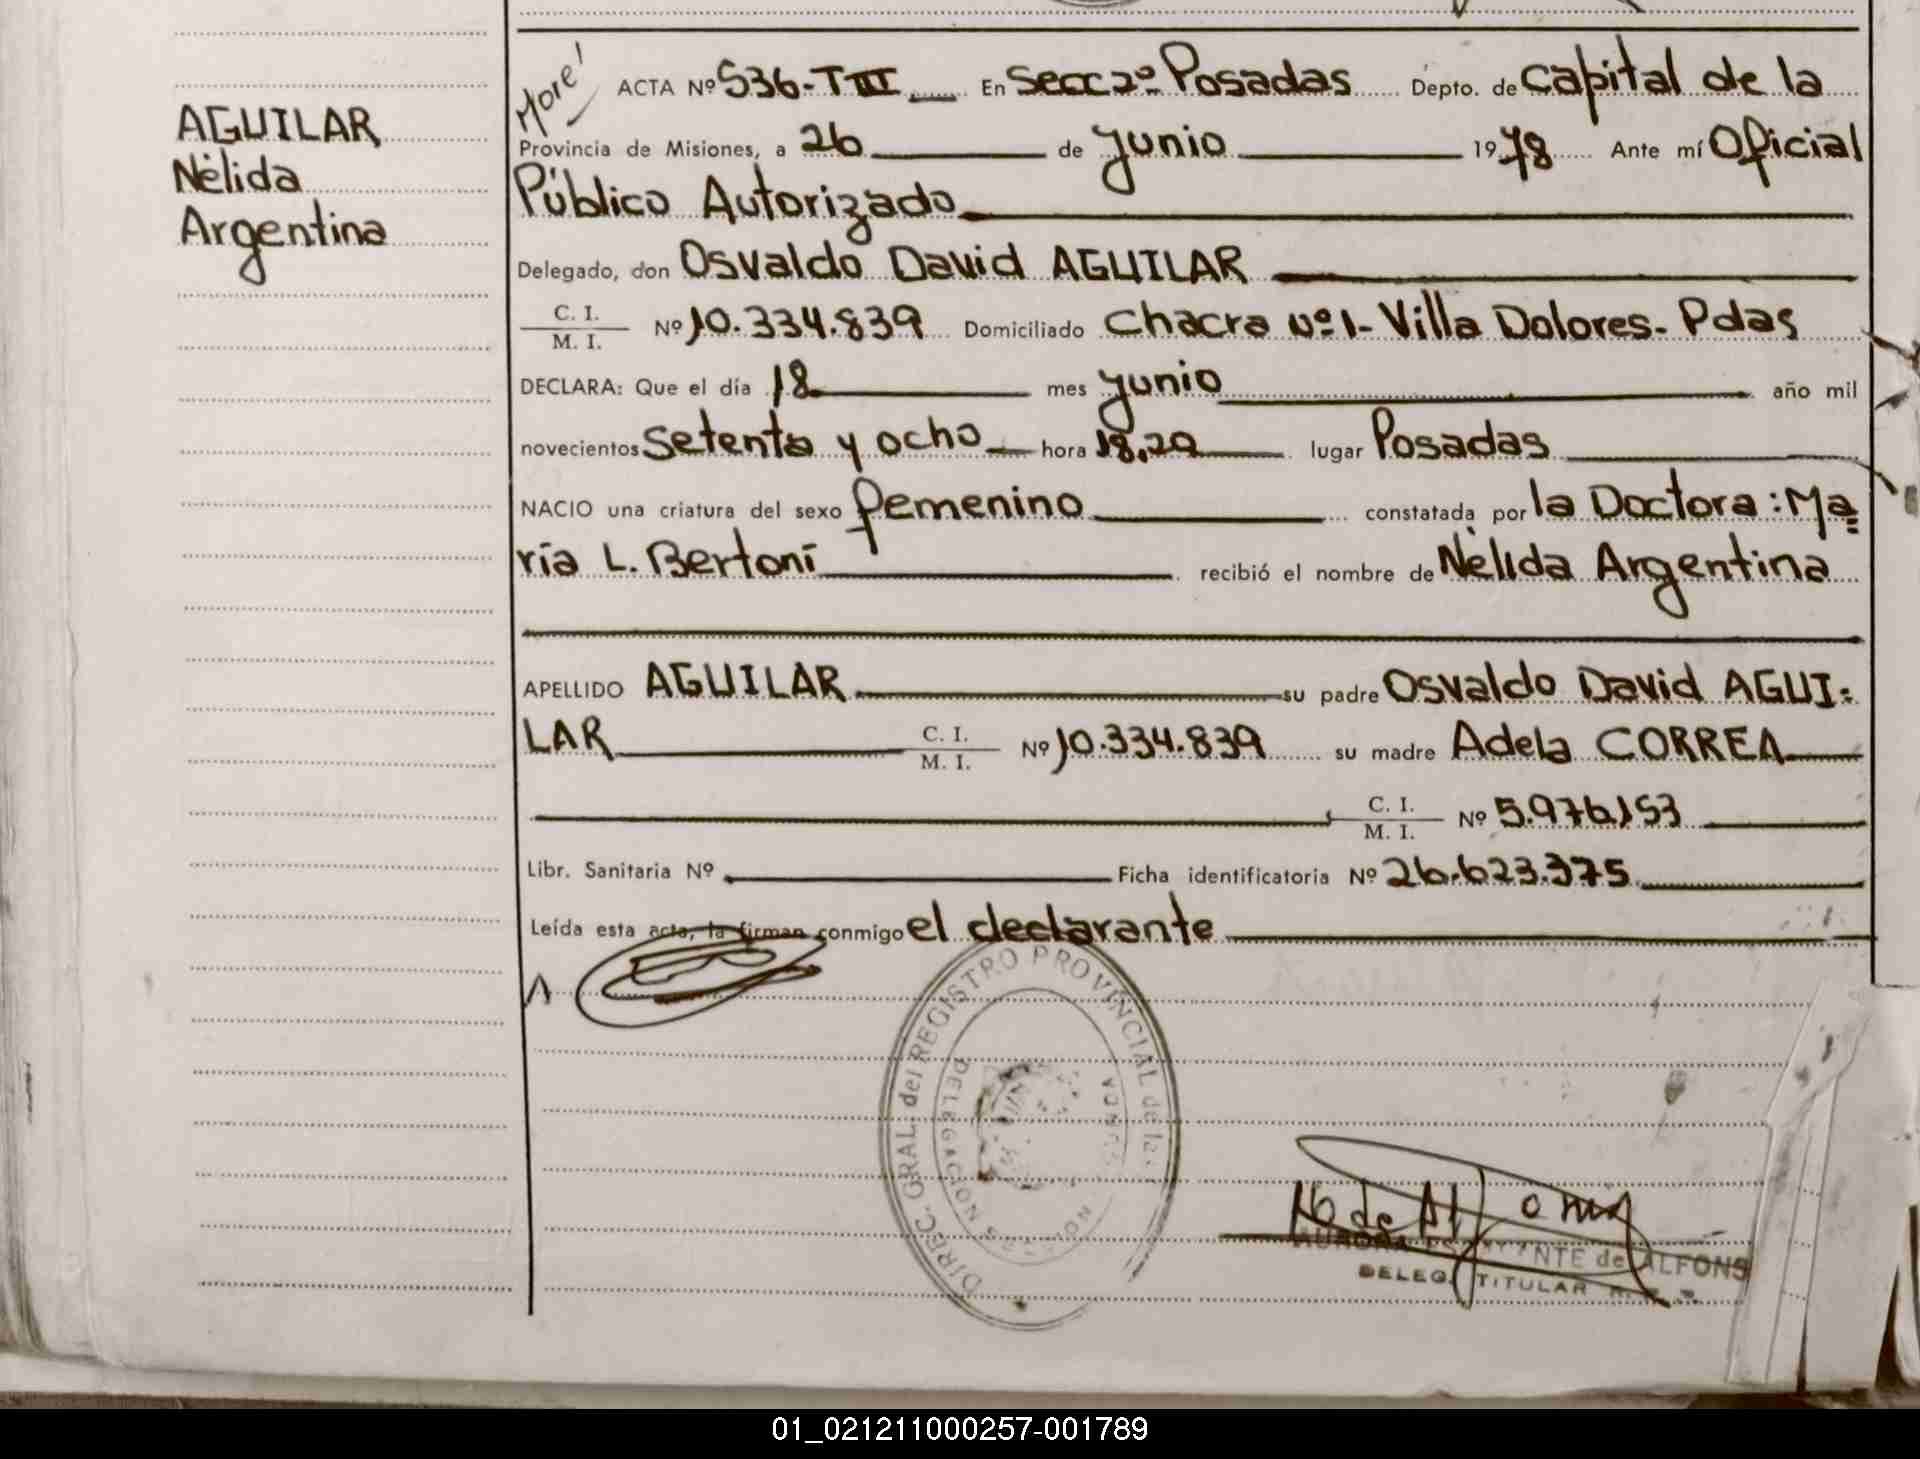 AGUILAR
Nélida
Argentina
More!
ACTA Nº 536-TIII En Secc 2º Posadas Depto. de Capital de la
Provincia de Misiones, a 26 de junio 1978 Ante mí Oficial
Público Autorizado
Delegado, don Osvaldo David AGUILAR
C. I.
M. I. Nº 10.334.839 Domiciliado Chacra nº 1- Villa Dolores- Pdas
DECLARA: Que el día 18 mes junio año mil
novecientos Setenta y ocho hora 18,20 lugar Posadas
NACIO una criatura del sexo femenino constatada por la Doctora: Ma=
ría L. Bertoni recibió el nombre de Nélida Argentina
APELLIDO AGUILAR su padre Osvaldo David AGUI=
LAR C. I.
M. I. Nº 10.334.839 su madre Adela CORREA
C. I.
M. I. Nº 5.976.153
Libr. Sanitaria Nº Ficha identificatoria Nº 26.623.375
Leída esta acta, la firman conmigo el declarante
DIREC. GRAL. del REGISTRO PROVINCIAL de las
DELEGACION
AURORA de ALFONS
DELEG. TITULAR
01_021211000257-001789